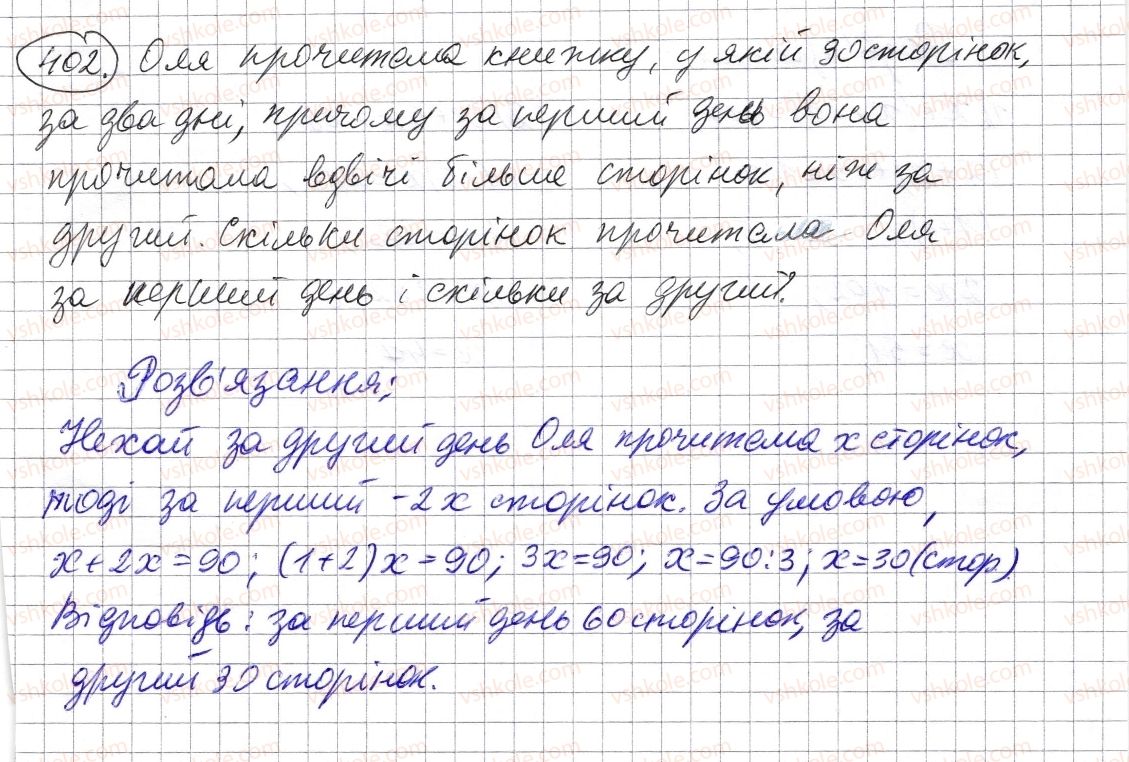 402. Оля прочитала книжку, у якій 90 сторінок,
за два дні, причому за перший день вона
прочитала вдвічі більше сторінок, ніж за
другий. Скільки сторінок прочитала Оля
за перший день і скільки за другий?
Розв'язання:
Нехай за другий день Оля прочитала x сторінок,
тоді за перший - 2x сторінок. За умовою,
x+2x=90; (1+2)x=90; 3x=90; x=90:3; x=30(стор)
Відповідь: за перший день 60 сторінок, за
другий 30 сторінок.